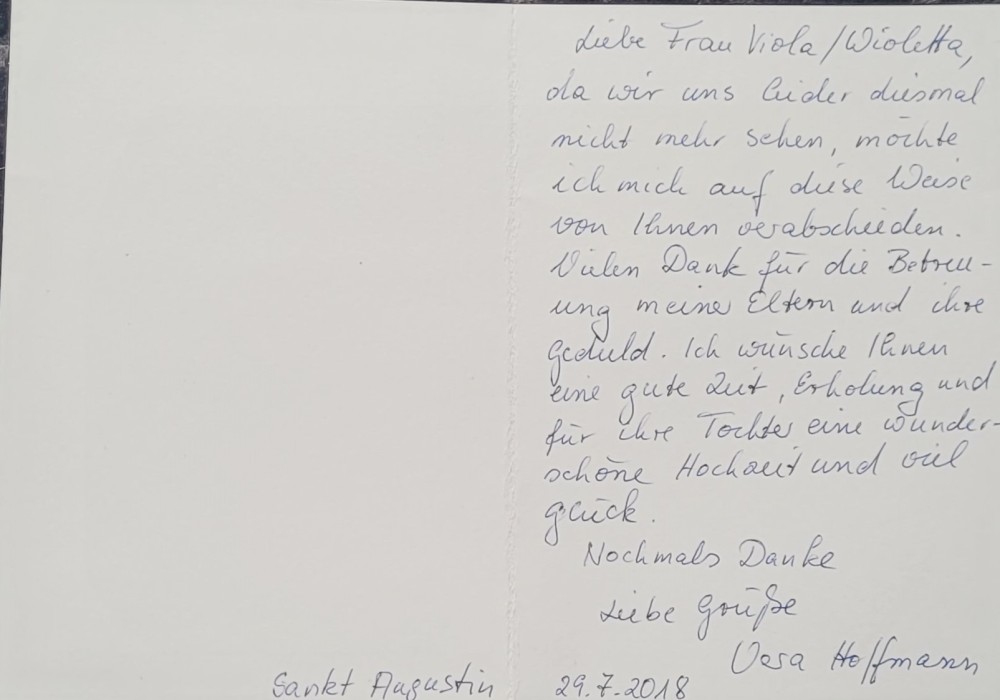 Liebe Frau Viola/Wioletta,
da wir uns leider diesmal
nicht mehr sehen, möchte
ich mich auf diese Weise
von Ihnen verabschieden.
Vielen Dank für die Betreu-
ung meiner Eltern und ihre
Geduld. Ich wünsche Ihnen
eine gute Zeit, Erholung und
für ihre Tochter eine wunder-
schöne Hochzeit und viel
Glück.
Nochmals Danke
Liebe Grüße
Vera Hoffmann
Sankt Augustin 29.7.2018